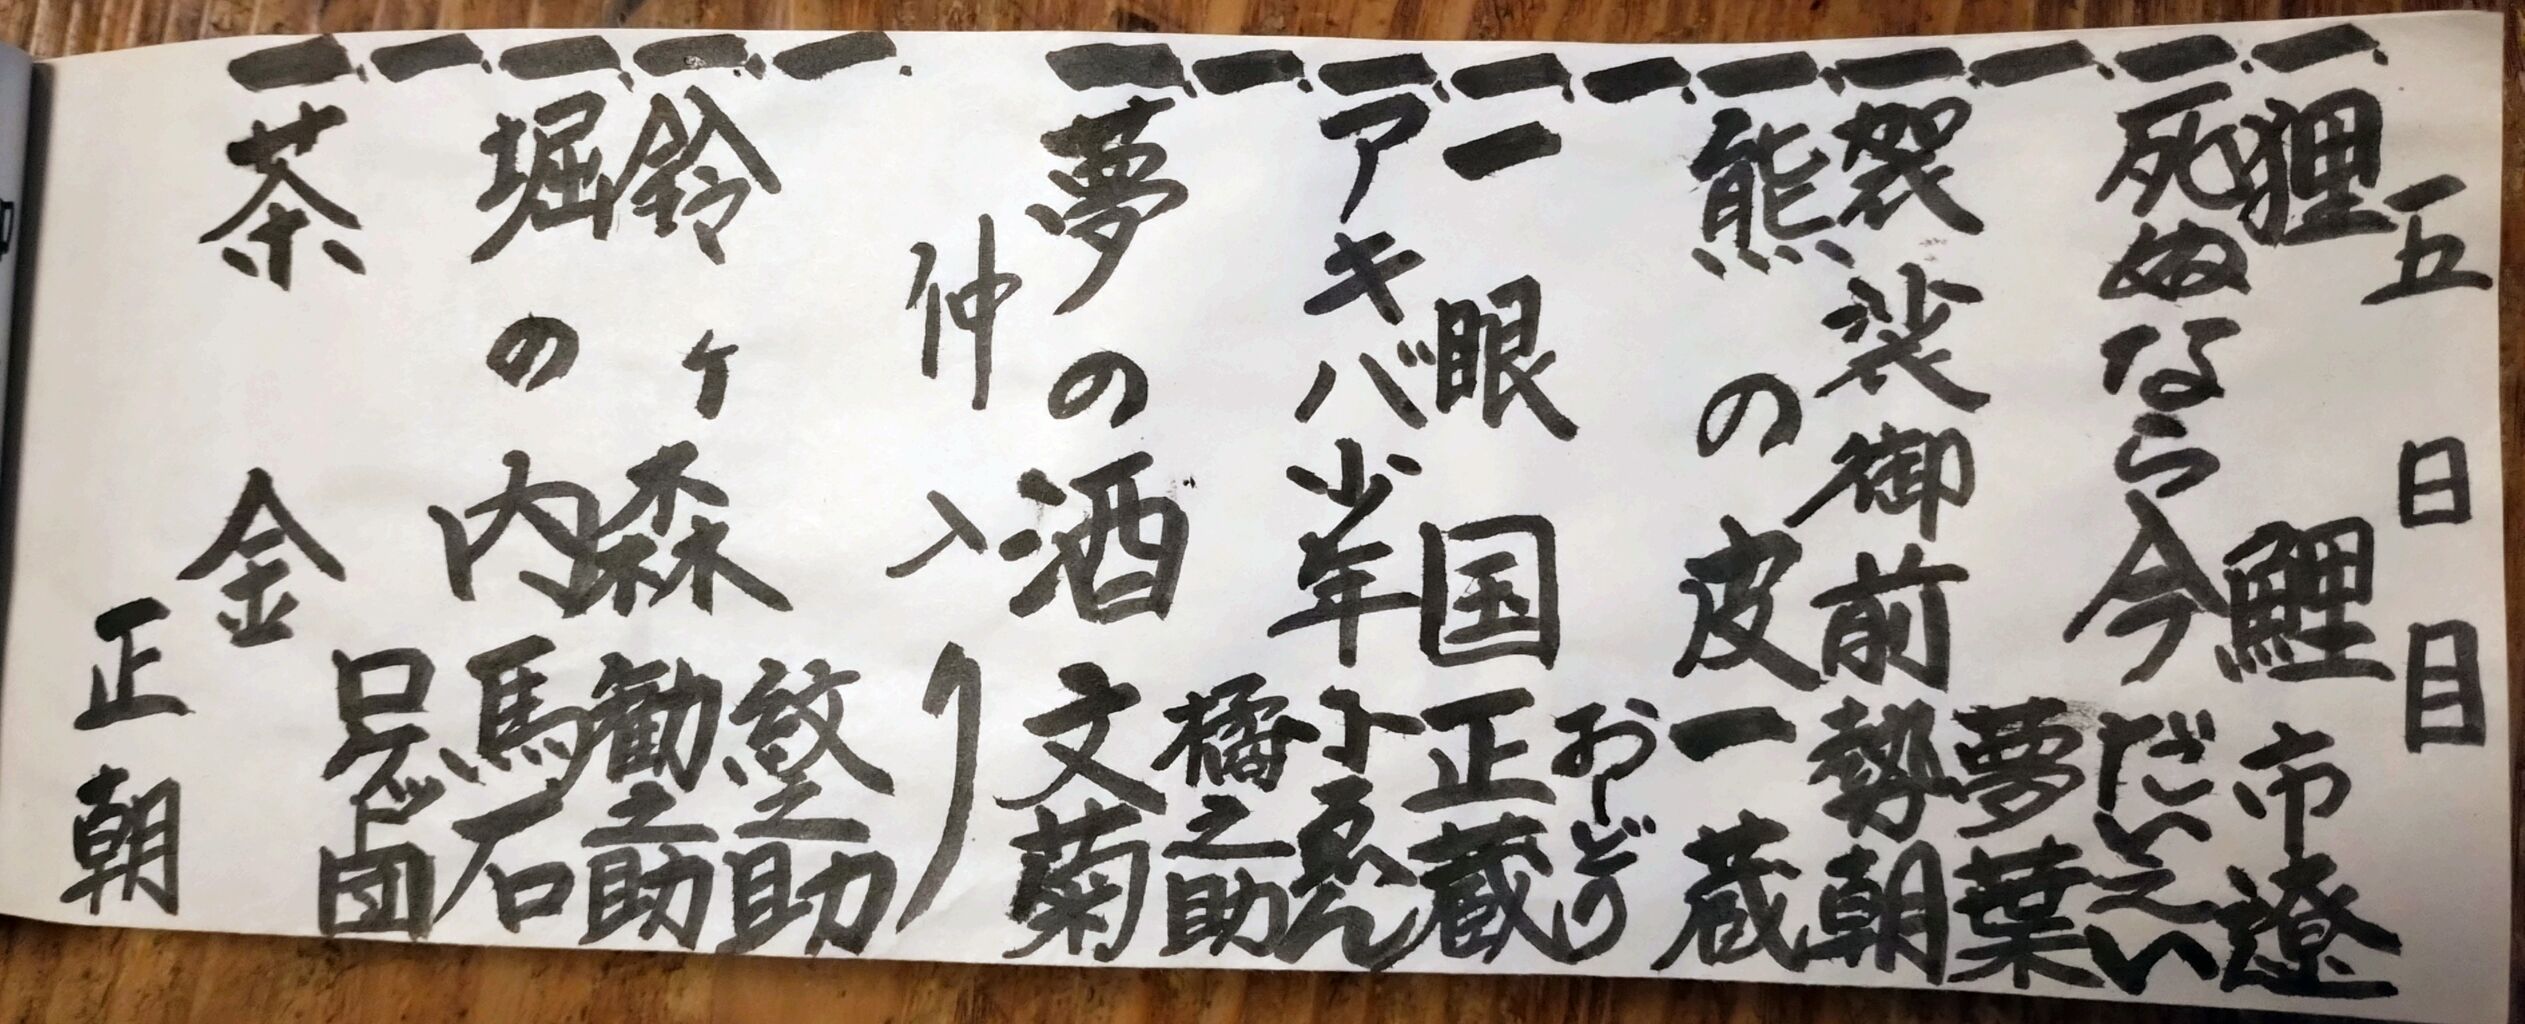 五日目
一、狸鯉 市遼
一、死ぬなら今 だいえい
一、夢葉
一、袈裟御前 勢朝
一、熊の皮 一蔵
一、おしどり
一、一眼国 正蔵
一、アキバ少年 小ゑん
一、橘之助
一、夢の酒 文菊
仲入り
一、紋之助
一、鈴ヶ森 勧之助
一、堀の内 馬石
一、ロケット団
一、茶金
正朝